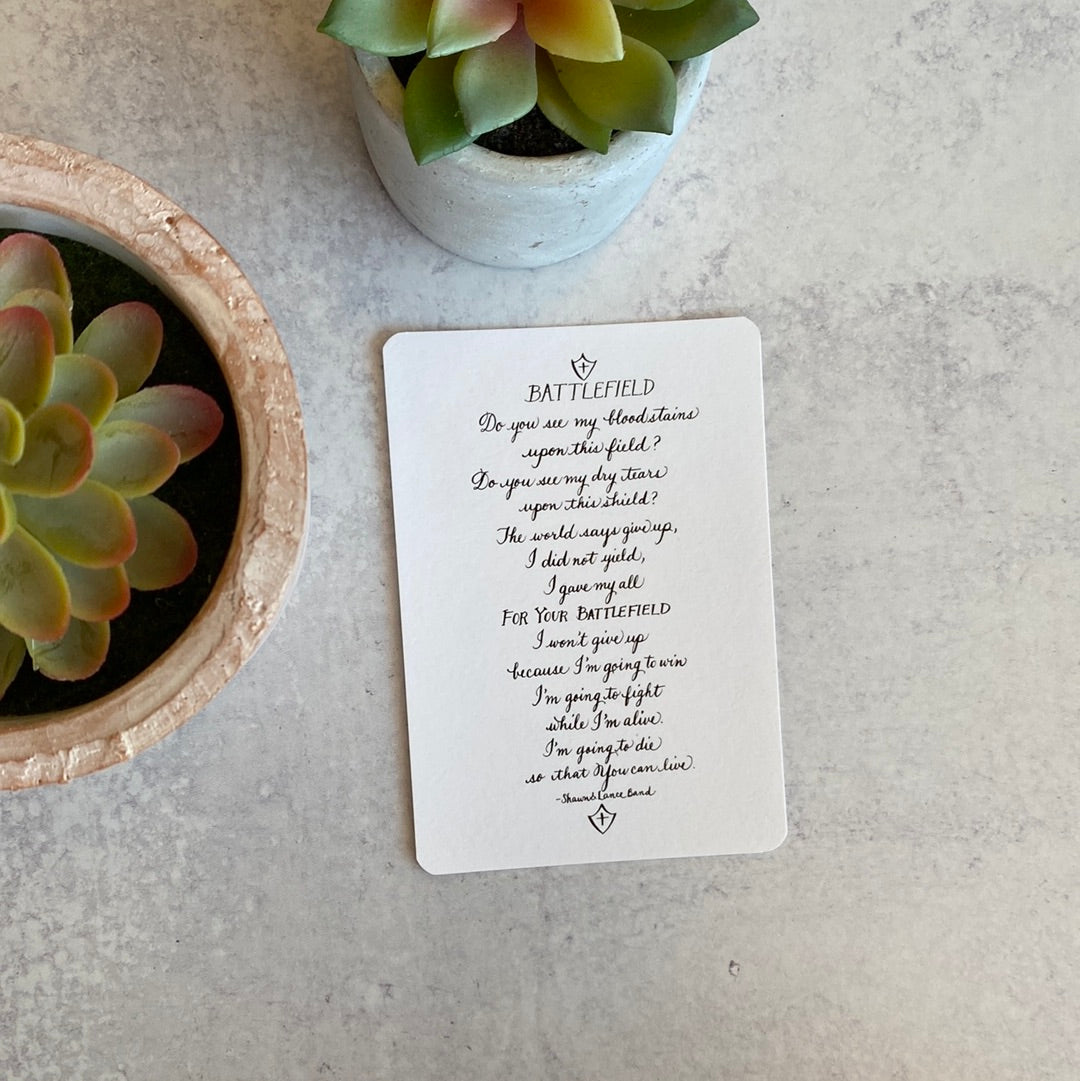 BATTLEFIELD
Do you see my bloodstains
upon this field?
Do you see my dry tears
upon this shield?
The world says give up,
I did not yield,
I gave my all
FOR YOUR BATTLEFIELD
I won't give up
because I'm going to win
I'm going to fight
while I'm alive.
I'm going to die
so that You can live.
-Shawn & Lance Band